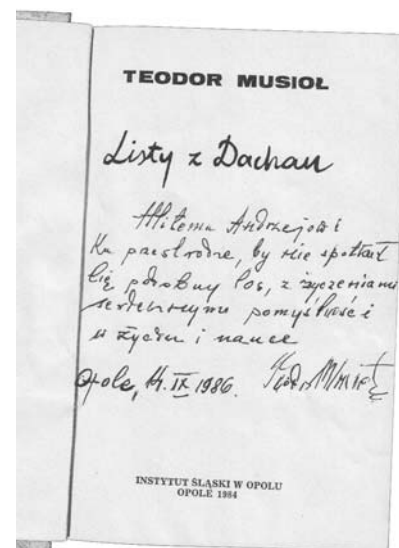 TEODOR MUSIOŁ
Listy z Dachau
Miłemu Andrzejowi
Ku przestrodze, by nie spotkał
Cię podobny los, z życzeniami
serdecznymi pomyślności
w życiu i nauce
Opole, 14. IX 1986. Teodor Musioł
INSTYTUT ŚLĄSKI W OPOLU
OPOLE 1984